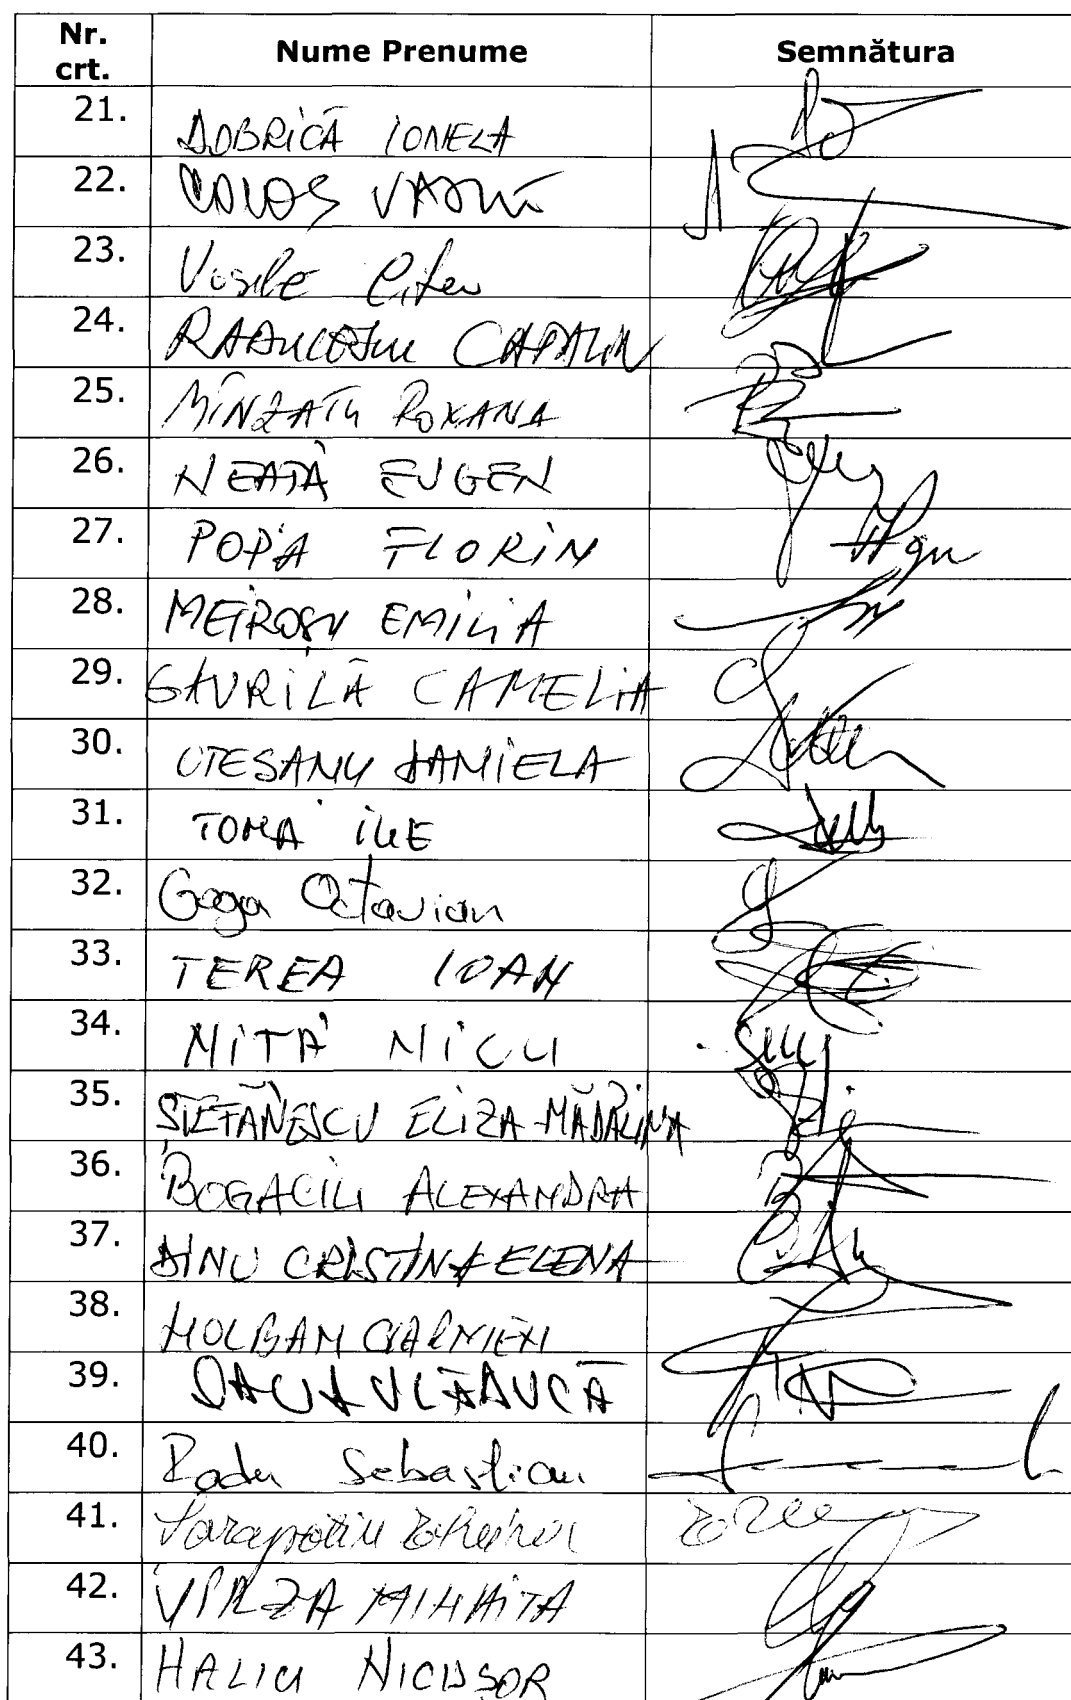 Nr. crt. Nume Prenume Semnătura
21. DOBRICĂ IONELA
22. VASILE
23. Vasile Citea
24. RADULESCU CATALIN
25. MÎNZATU ROXANA
26. NEAȚĂ EUGEN
27. POPA FLORIN
28. MEIROȘU EMILIA
29. GAVRILĂ CAMELIA
30. OTESANU DANIELA
31. TOMA ILIE
32. Goga Octavian
33. TEREA IOAN
34. MITĂ NICU
35. ȘTEFĂNESCU ELIZA-MĂDĂLINA
36. BOGACIU ALEXANDRA
37. DINU CRISTINA ELENA
38. HOLBAN
39. DACIA VLĂDUCĂ
40. Radu Sebastian
41.
42. VIRZA MIHAITA
43. HALICI NICUSOR